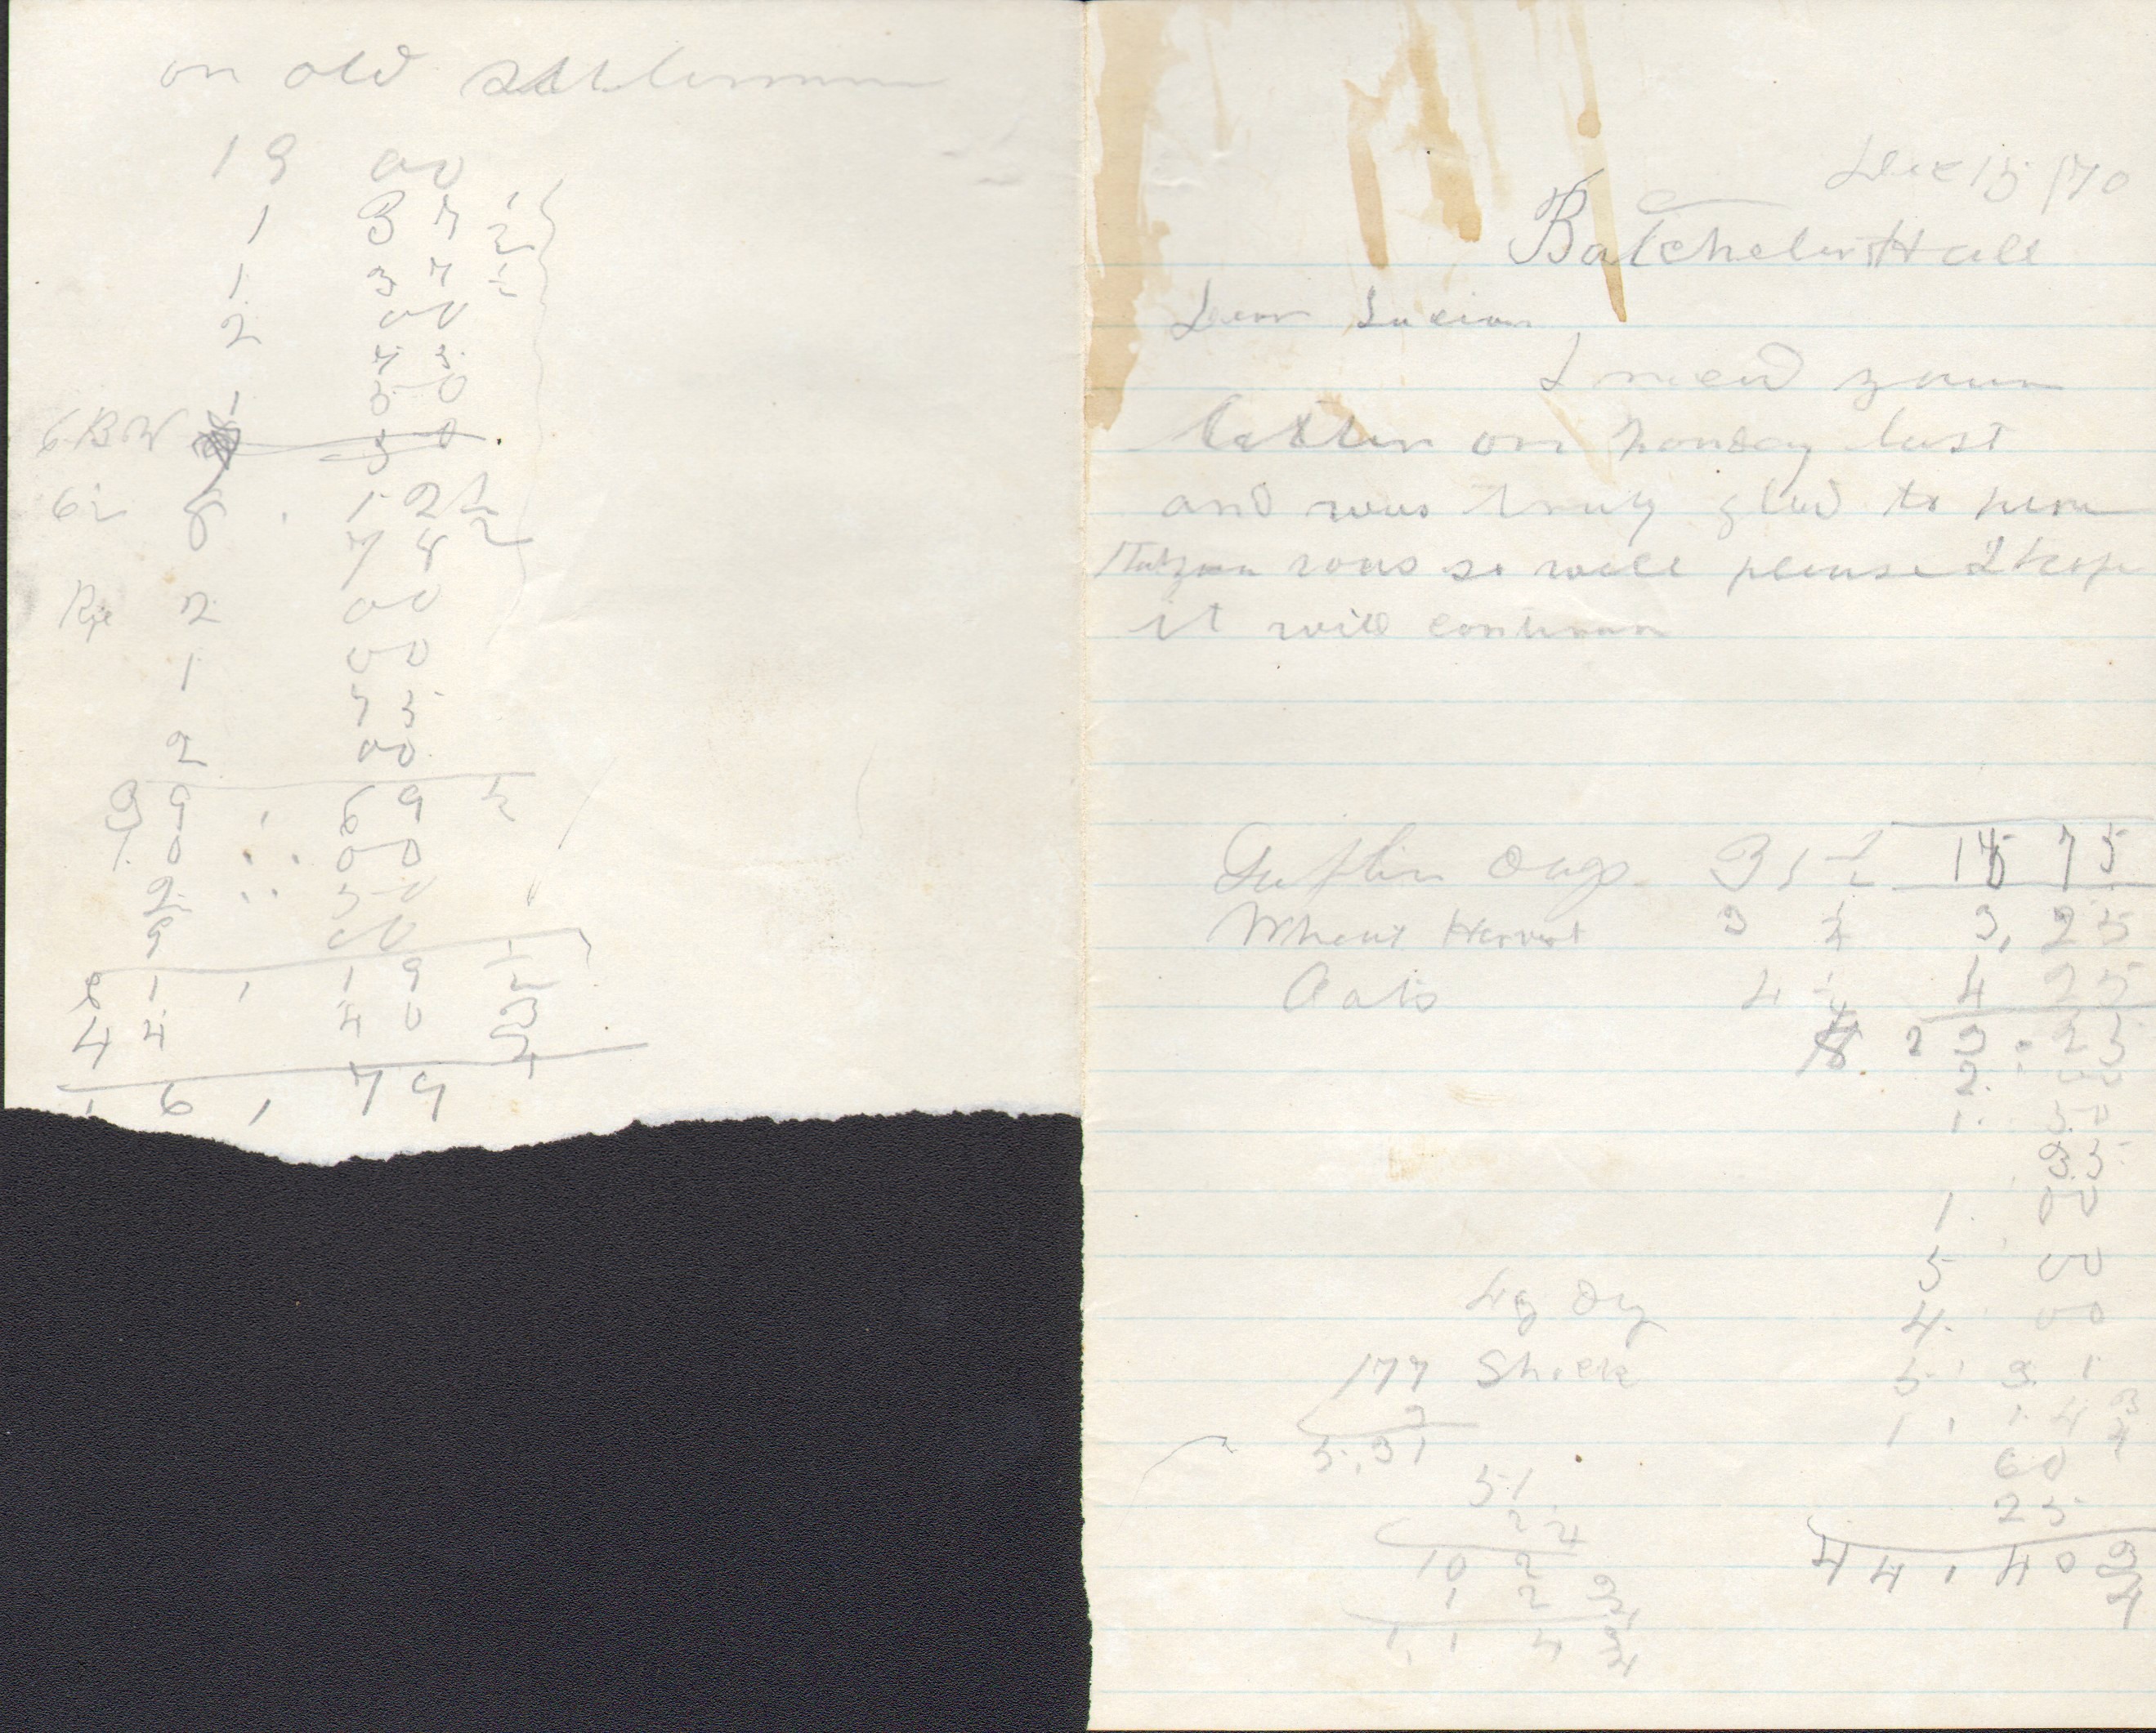 on old settlement
19 00
1 37 1/2
1 37 1/2
2 00
75
1 50
6 BW 50
6 8 . 12 1/2
74
Rye 2 00
1 00
75
2 00
39 , 69 1/2
10 : . 00
2 : . 50
9 00
61 , 19 1/2
44 40 3/4
16 , 79
Dec 15 /70
Batchelers Hall
Dear Lucian
I reced your
letter on Monday last
and was truly glad to hear
That you was so well pleased I hope
it will continue
days 31 1/2 15 75
Wheat Harvest 3 1/4 3, 25
Oats 4 1/4 4 25
23 . 25
2. 00
1. 50
35
1. 00
5 00
4. 00
5 , 31
1 , 14 3/4
60
25
44 , 40 3/4
177 Shock
3
5,31
51
2 1/4
10 2
1 2 3/4
1, 1 4 3/4